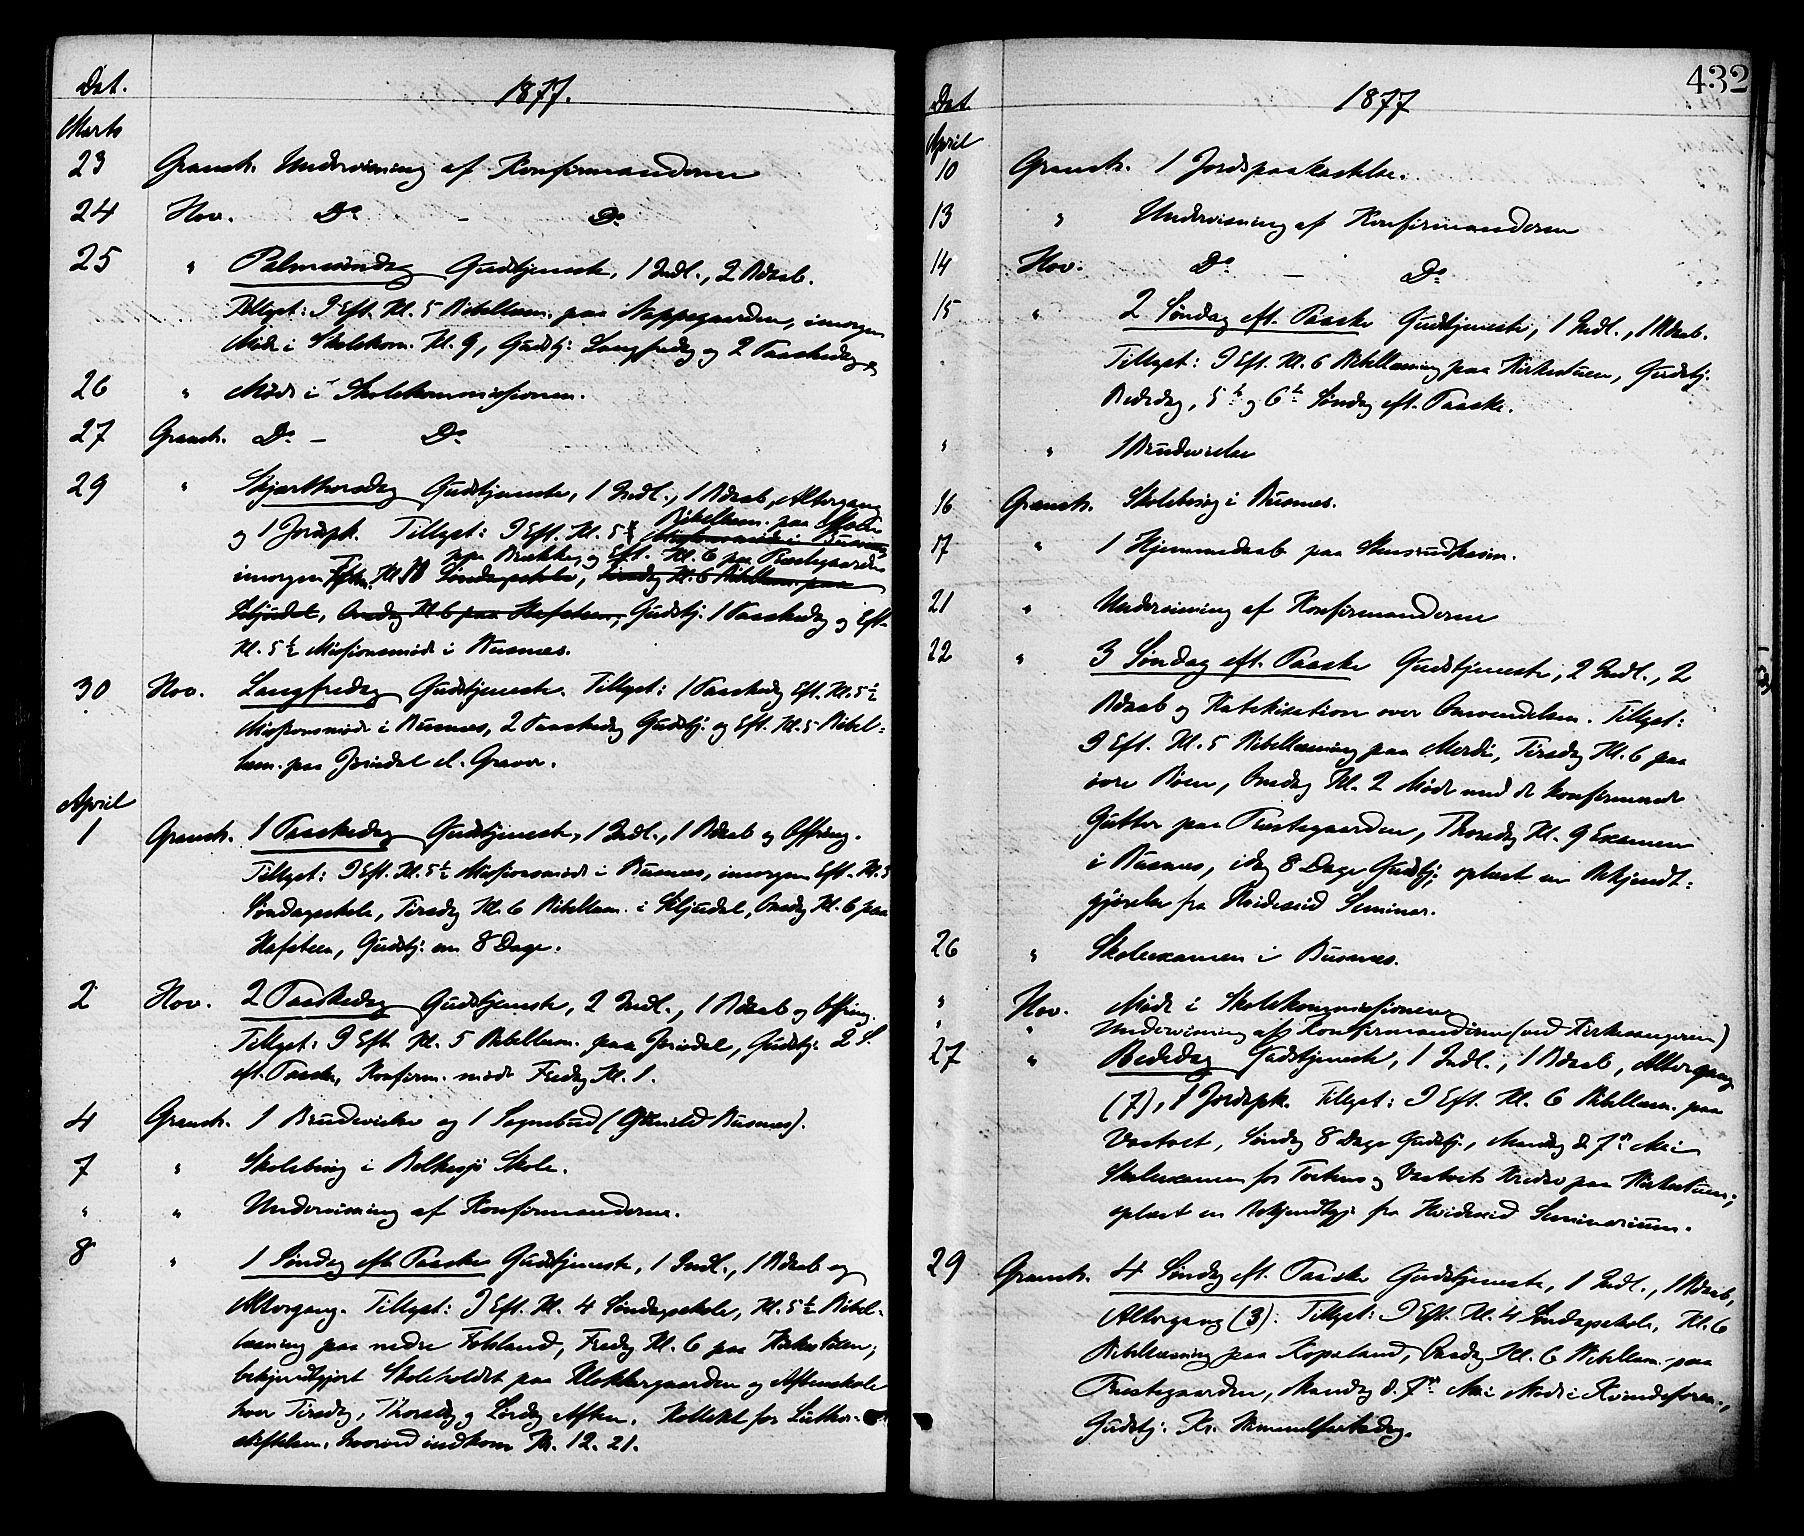 Dat. 1877.
Marts
23 Gransh. Undervisning af Konfirmanderne
24 Hov. Do - Do
25 " Palmesöndag Gudstjeneste, 1 Indl., 2 Bdaab.
Tillyst: I Eft. Kl. 5 Bibellæsn. paa Nappegaarden, imorgen
Möde i Skolekom. Kl. 9, Gudstj. Langfredag og 2 Paaskedag
26 " Möde i Skolekommissionen.
27 Gransh. Do - Do
29 " Skjærthorsdag Gudstjeneste, 1 Indl., 1 Bdaab, Altergang
og 1 Jordpk. Tillyst: I Eft. Kl. 5 Bibellæsn. paa
Bakke, og Eft. Kl. 6 paa Præstegaarden
imorgen Eftm. Kl. Söndagsskole, Tirsdag Kl. 6 Bibellæsn. paa
Onsdag Kl. 6 paa Hafsteen, Gudstj. 1 Paaskedag og Eft.
Kl. 5½ Missionsmöde i Busnes.
30 Hov. Langfredag Gudstjeneste. Tillyst: 1 Paaskedag Eft. Kl. 5½
Missionsmöde i Busnes, 2 Paaskedag Gudstj. og Eft. Kl. 5 Bibel-
læsn. paa Jondal el. Graver.
April
1 Gransh. 1 Paaskedag Gudstjeneste, 1 Indl., 1 Bdaab og Offring.
Tillyst: I Eft. Kl. 5½ Missionsmöde i Busnes, imorgen Eft. Kl. 5
Söndagsskole, Tirsdag Kl. 6 Bibellæsn. i Onsdag Kl. 6 paa
Hafsteen, Gudstj. om 8 Dage.
2 Hov. 2 Paaskedag Gudstjeneste, 2 Indl., 1 Bdaab og Offring.
Tillyst: I Eft. Kl. 5 Bibellæsn. paa Jondal, Gudstj. 2 S.
eft. Paaske, Konfirm. møde Fredag Kl. 1.
4 Gransh. 1 Brudevielse og 1 Sognebud (Busnes).
7 " Skolebesög i Bolkesjö Skole.
" " Undervisning af Konfirmanderne.
8 " 1 Söndag eft. Paaske Gudstjeneste, 1 Indl., 1 Bdaab og
Altergang. Tillyst: I Eft. Kl. 4 Söndagsskole, Kl. 5½ Bibel-
læsning paa nedre Folsland, Fredag Kl. 6 paa Kirkestuen;
bekjendtgjort Skoleholdet paa Klokkergaarden og Aftenskole
hver Tirsdag, Thorsdag og Lördag Aften. Kollekt for Luther-
stiftelsen, hvorved indkom Kr. 12. 21.
432
Dat. 1877
April
10 Gransh. 1 Jordspaakastelse.
13 " Undervisning af Konfirmanderne
14 Hov. Do - Do
15 " 2 Söndag eft. Paaske Gudstjeneste, 1 Indl., 1 Bdaab.
Tillyst: I Eft. Kl. 6 Bibellæsning paa Kirkestuen, Gudstj.
Bededag, 5te og 6te Söndag eft. Paaske.
" " 1 Brudevielse
16 Gransh. Skolebesög i Busnes.
17 " 1 Hjemmedaab paa
21 " Undervisning af Konfirmanderne
22 " 3 Söndag eft. Paaske Gudstjeneste, 2 Indl., 2
Bdaab og Katekisation over Omvendelsen. Tillyst:
I Eft. Kl. 5 Bibellæsning paa Tirsdag Kl. 6 paa
övre Böen, Onsdag Kl. 2 Möde med de konfirmerede
Gutter paa Præstegaarden, Thorsdag Kl. 9 Examen
i Busnes, idag 8 Dage Gudstj.; oplæst en Bekjendt-
gjörelse fra Hvideseid Seminar.
26 " Skoleexamen i Busnes.
" Hov. Möde i Skolekommissionen
" " Undervisning af Konfirmanderne (ved Kirkesangeren)
27 " Bededag Gudstjeneste, 1 Indl., 1 Bdaab, Altergang
(7), 1 Jordspk. Tillyst: I Eft. Kl. 6 Bibellæsn. paa
Vastvet, Söndag 8 Dage Gudstj., Mandag d. 7de Mai
Skoleexamen for og Vastvets Kredse paa Kirkestuen;
oplæst en Bekjendtgj. fra Hvideseid Seminarium.
29 Gransh. 4 Söndag eft. Paaske Gudstjeneste, 1 Indl., 1 Bdaab,
Altergang (3). Tillyst: I Eft. Kl. 4 Söndagsskole, Kl. 6
Bibellæsning paa Kopsland, Onsdag Kl. 6 Bibellæsn. paa
Præstegaarden, Mandag d. 7de Mai Möde i Kvindeforen.,
Gudstj. Kr. Himmelfartsdag.